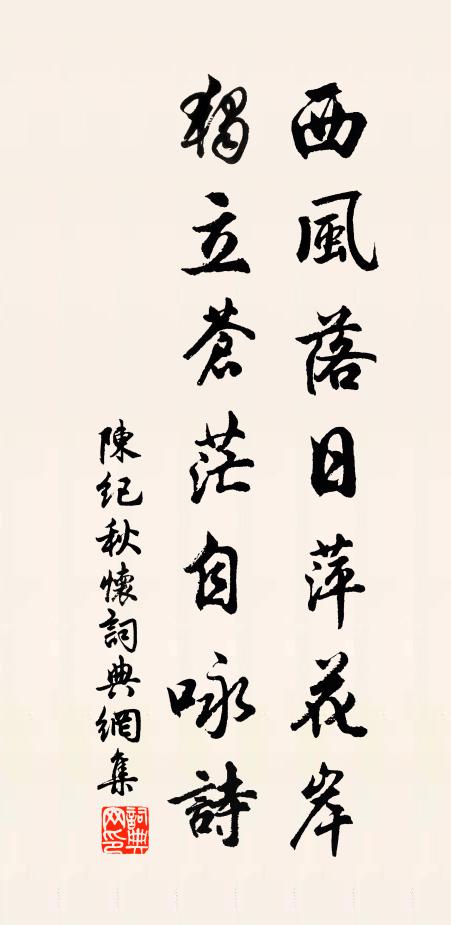 西風落日萍花岸
獨立蒼茫自咏詩
陳紀秋懷詞典網集
詞典网印